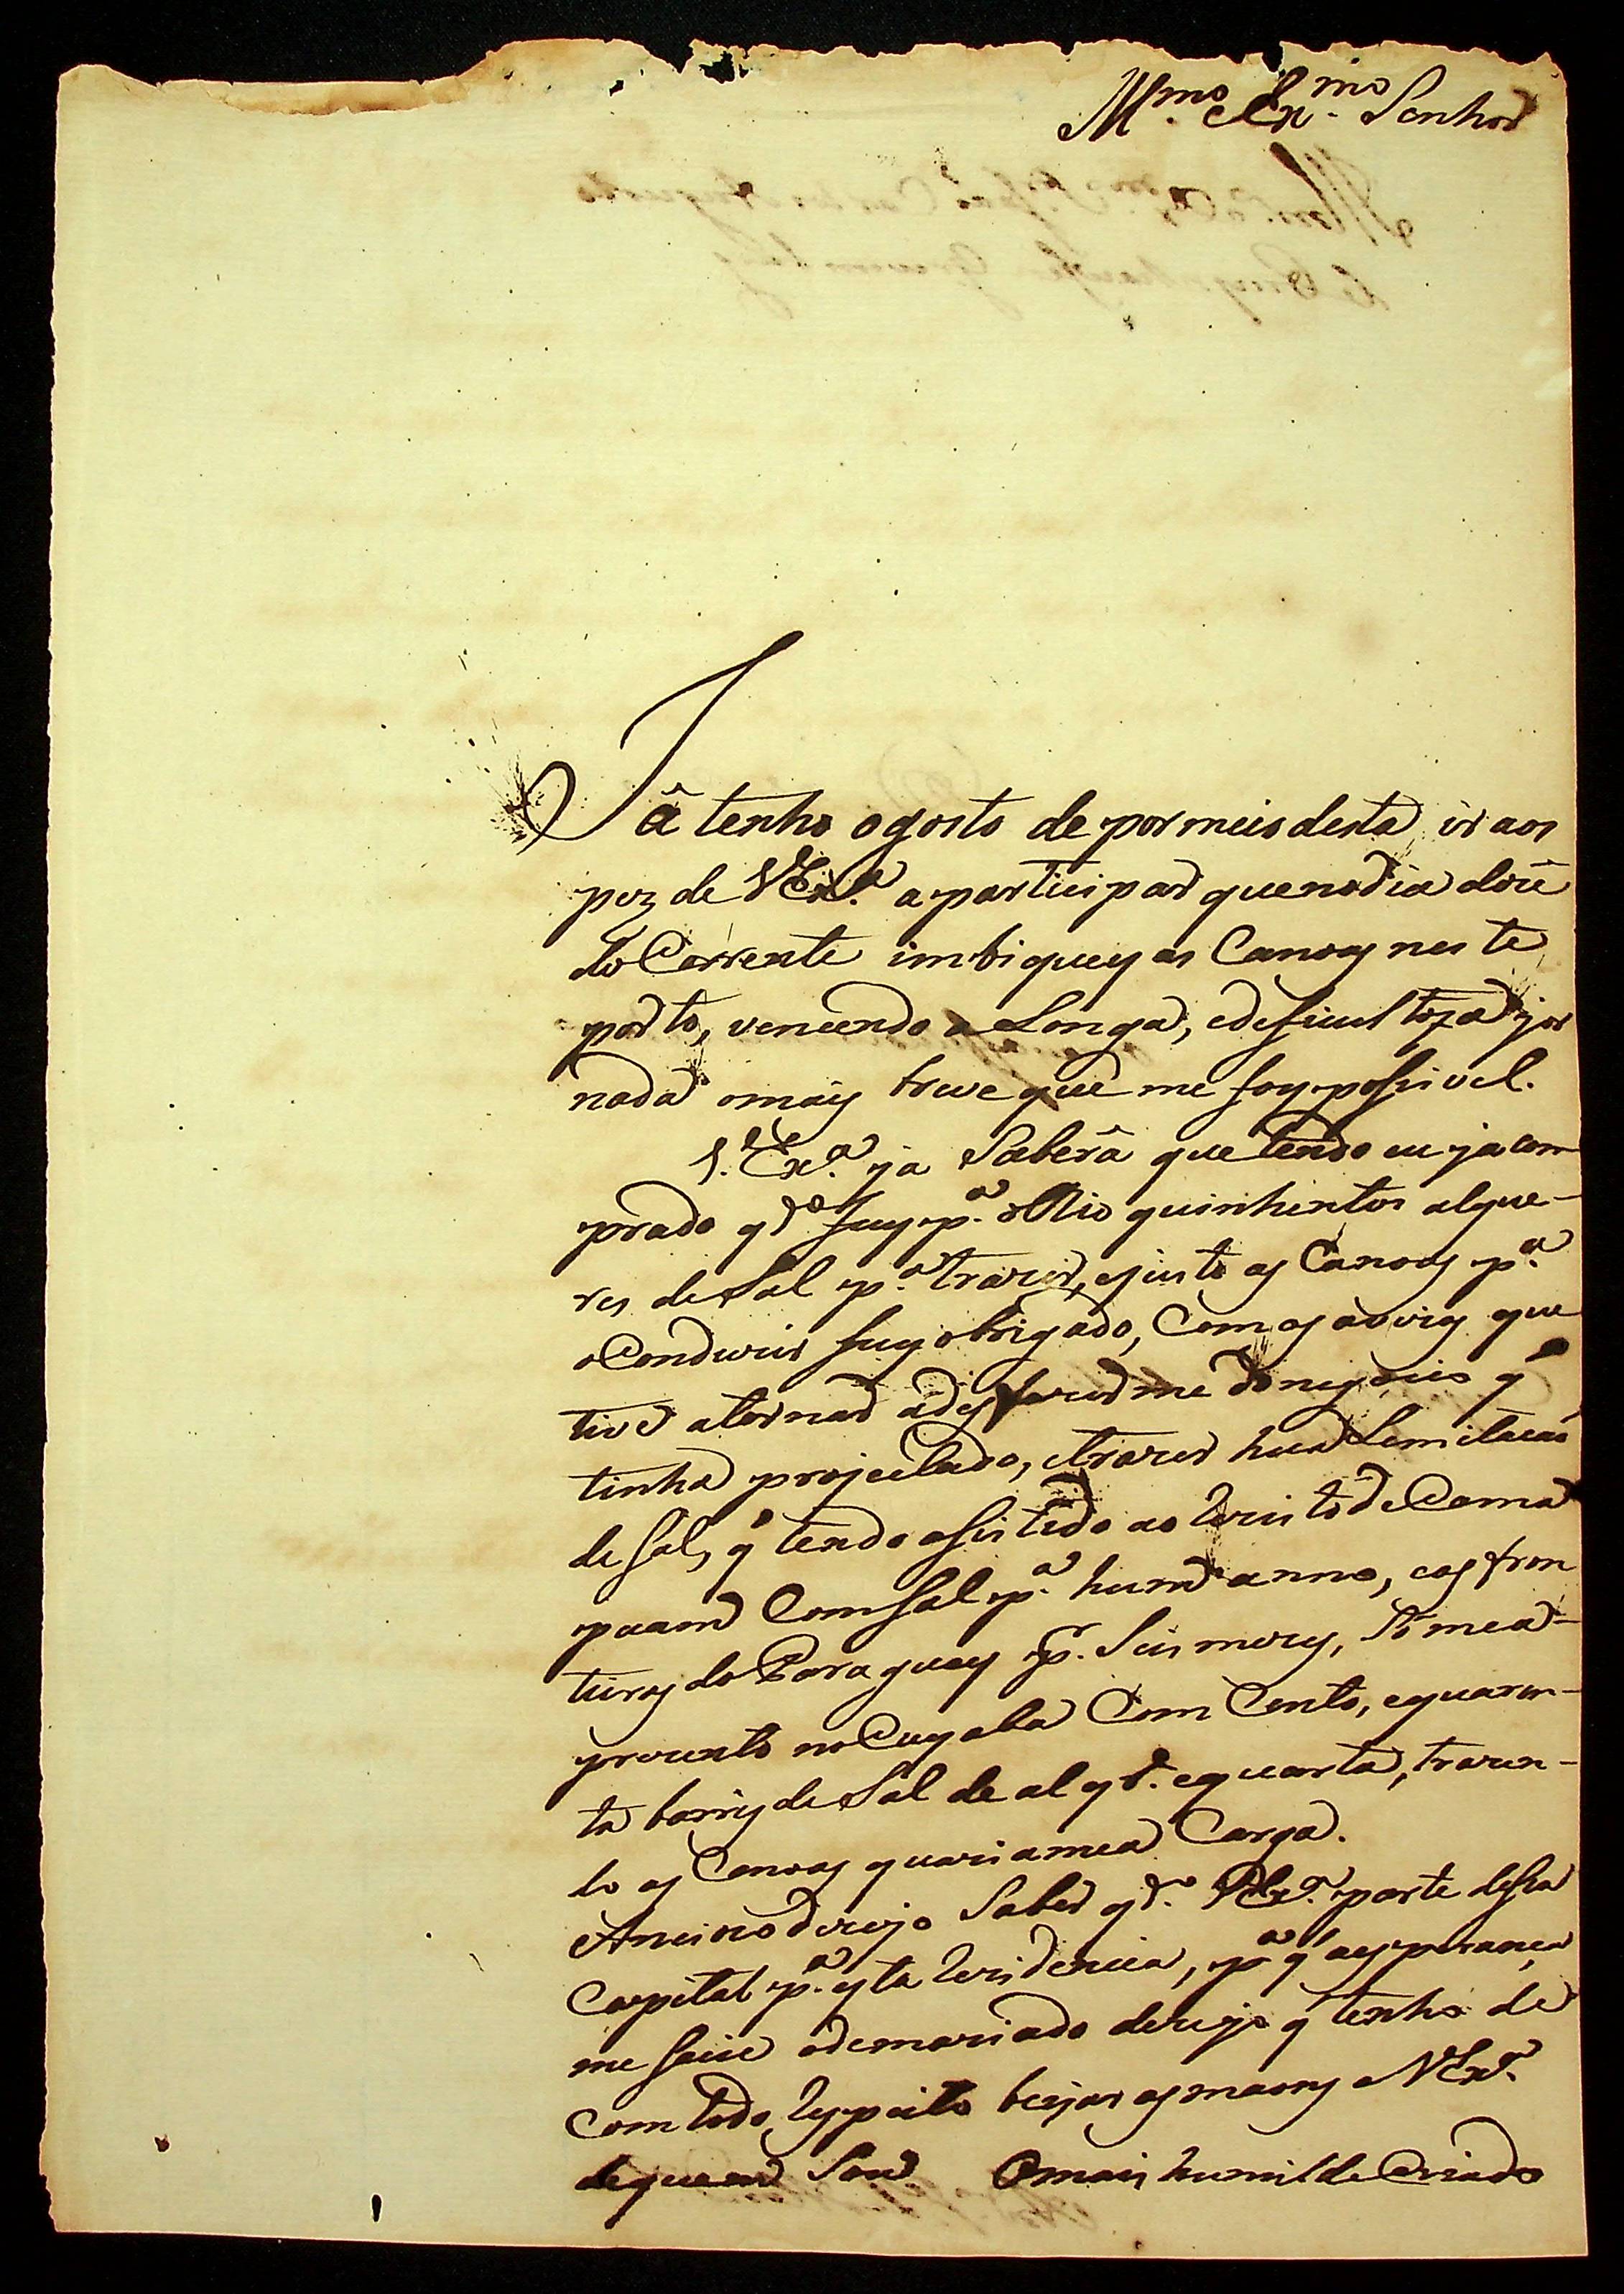 Illmo. Exmo. Senhor
Jâ tenho ogosto de por meio desta ir aos
pez de VExa. aparticipar quenodia doze
do Corrente imbiquey as Canoas neste
porto, vencendo a Longa, edeficultoza jor
nada omáis breve que me foy possivel.
V. Exa. ja Saberâ que tendo eu jacom
prado qdo. fuy pa. o Rio quinhentos alquei-
res de Sal pa. trazer, ejusto as Canoas pa.
oConduzir fuy obrigado, Com as avizos que
tive atornar adesfazerme do negocio q
tinha projectado, etrazer hua Limitação
de Sal, q tendo asistido ao destrito de Cama
puam Com Sal pa. hum anno, eas fron
teiras do Paraguay pr. Seis mezes, Sô mea-
prezento no Cuyaba Com Cento, equaren-
ta barris de Sal de alqr. equarta, trazen-
do as Canoas quazi a mea Carga.
Ancioso dezejo Saber qdo. VExa. parte desta
Capital pa. esta Rezidencia, pa. q aesperança
me sacie odemaziado dezejo q tenho de
com todo Respeito beijar as maons a VExa.
dequem Sou Omais humilde Criado